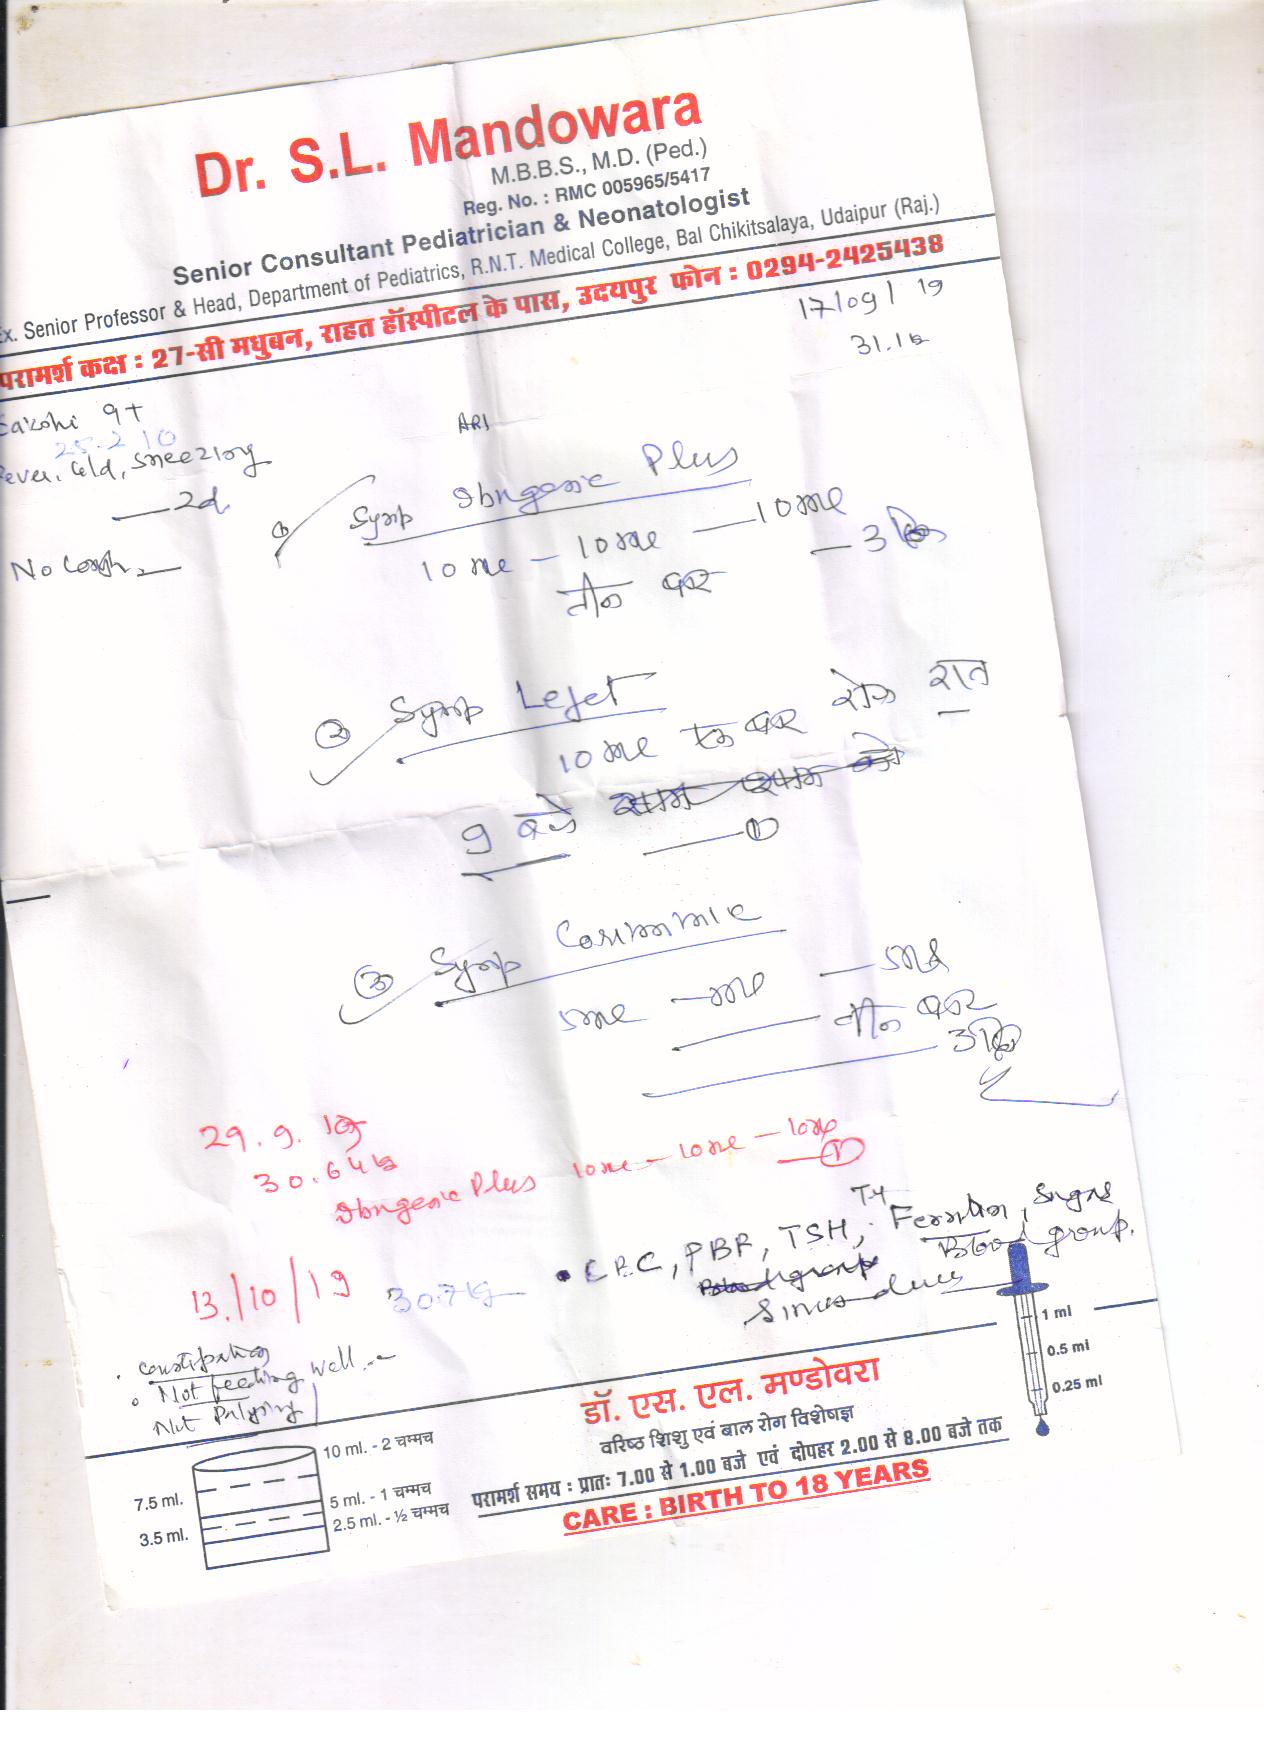 Dr. S.L. Mandowara
M.B.B.S., M.D. (Ped.)
Reg. No. : RMC 005965/5417
Senior Consultant Pediatrician & Neonatologist
Ex. Senior Professor & Head, Department of Pediatrics, R.N.T. Medical College, Bal Chikitsalaya, Udaipur (Raj.)
परामर्श कक्ष : 27-सी मधुबन, राहत हॉस्पीटल के पास, उदयपुर फोन : 0294-2425438
17/09/19
31.1k
9+
25.2 10
ARI
Fever, Cold, Sneezing
2d
No Cough
① Syrup Ibugesic Plus
10ml - 10ml - 10ml
- 3 दिन
तीन बार
② Syrup Lejet
10ml एक बार रोज रात
9 बजे
①
③ Syrup
5ml - 5ml - 5ml
तीन बार
3 दिन
29.9.19
30.64k
Ibugesic Plus 10ml - 10ml - 10ml
①
13/10/19 30.7kg
• CBC, PBF, TSH, T4, Ferritin, Sugar
Blood group.
• Constipation
• Not feeding well
Not Playing
1 ml
0.5 ml
0.25 ml
डॉ. एस. एल. मण्डोवरा
वरिष्ठ शिशु एवं बाल रोग विशेषज्ञ
परामर्श समय : प्रातः 7.00 से 1.00 बजे एवं दोपहर 2.00 से 8.00 बजे तक
CARE : BIRTH TO 18 YEARS
10 ml. - 2 चम्मच
7.5 ml.
5 ml. - 1 चम्मच
2.5 ml. - ½ चम्मच
3.5 ml.